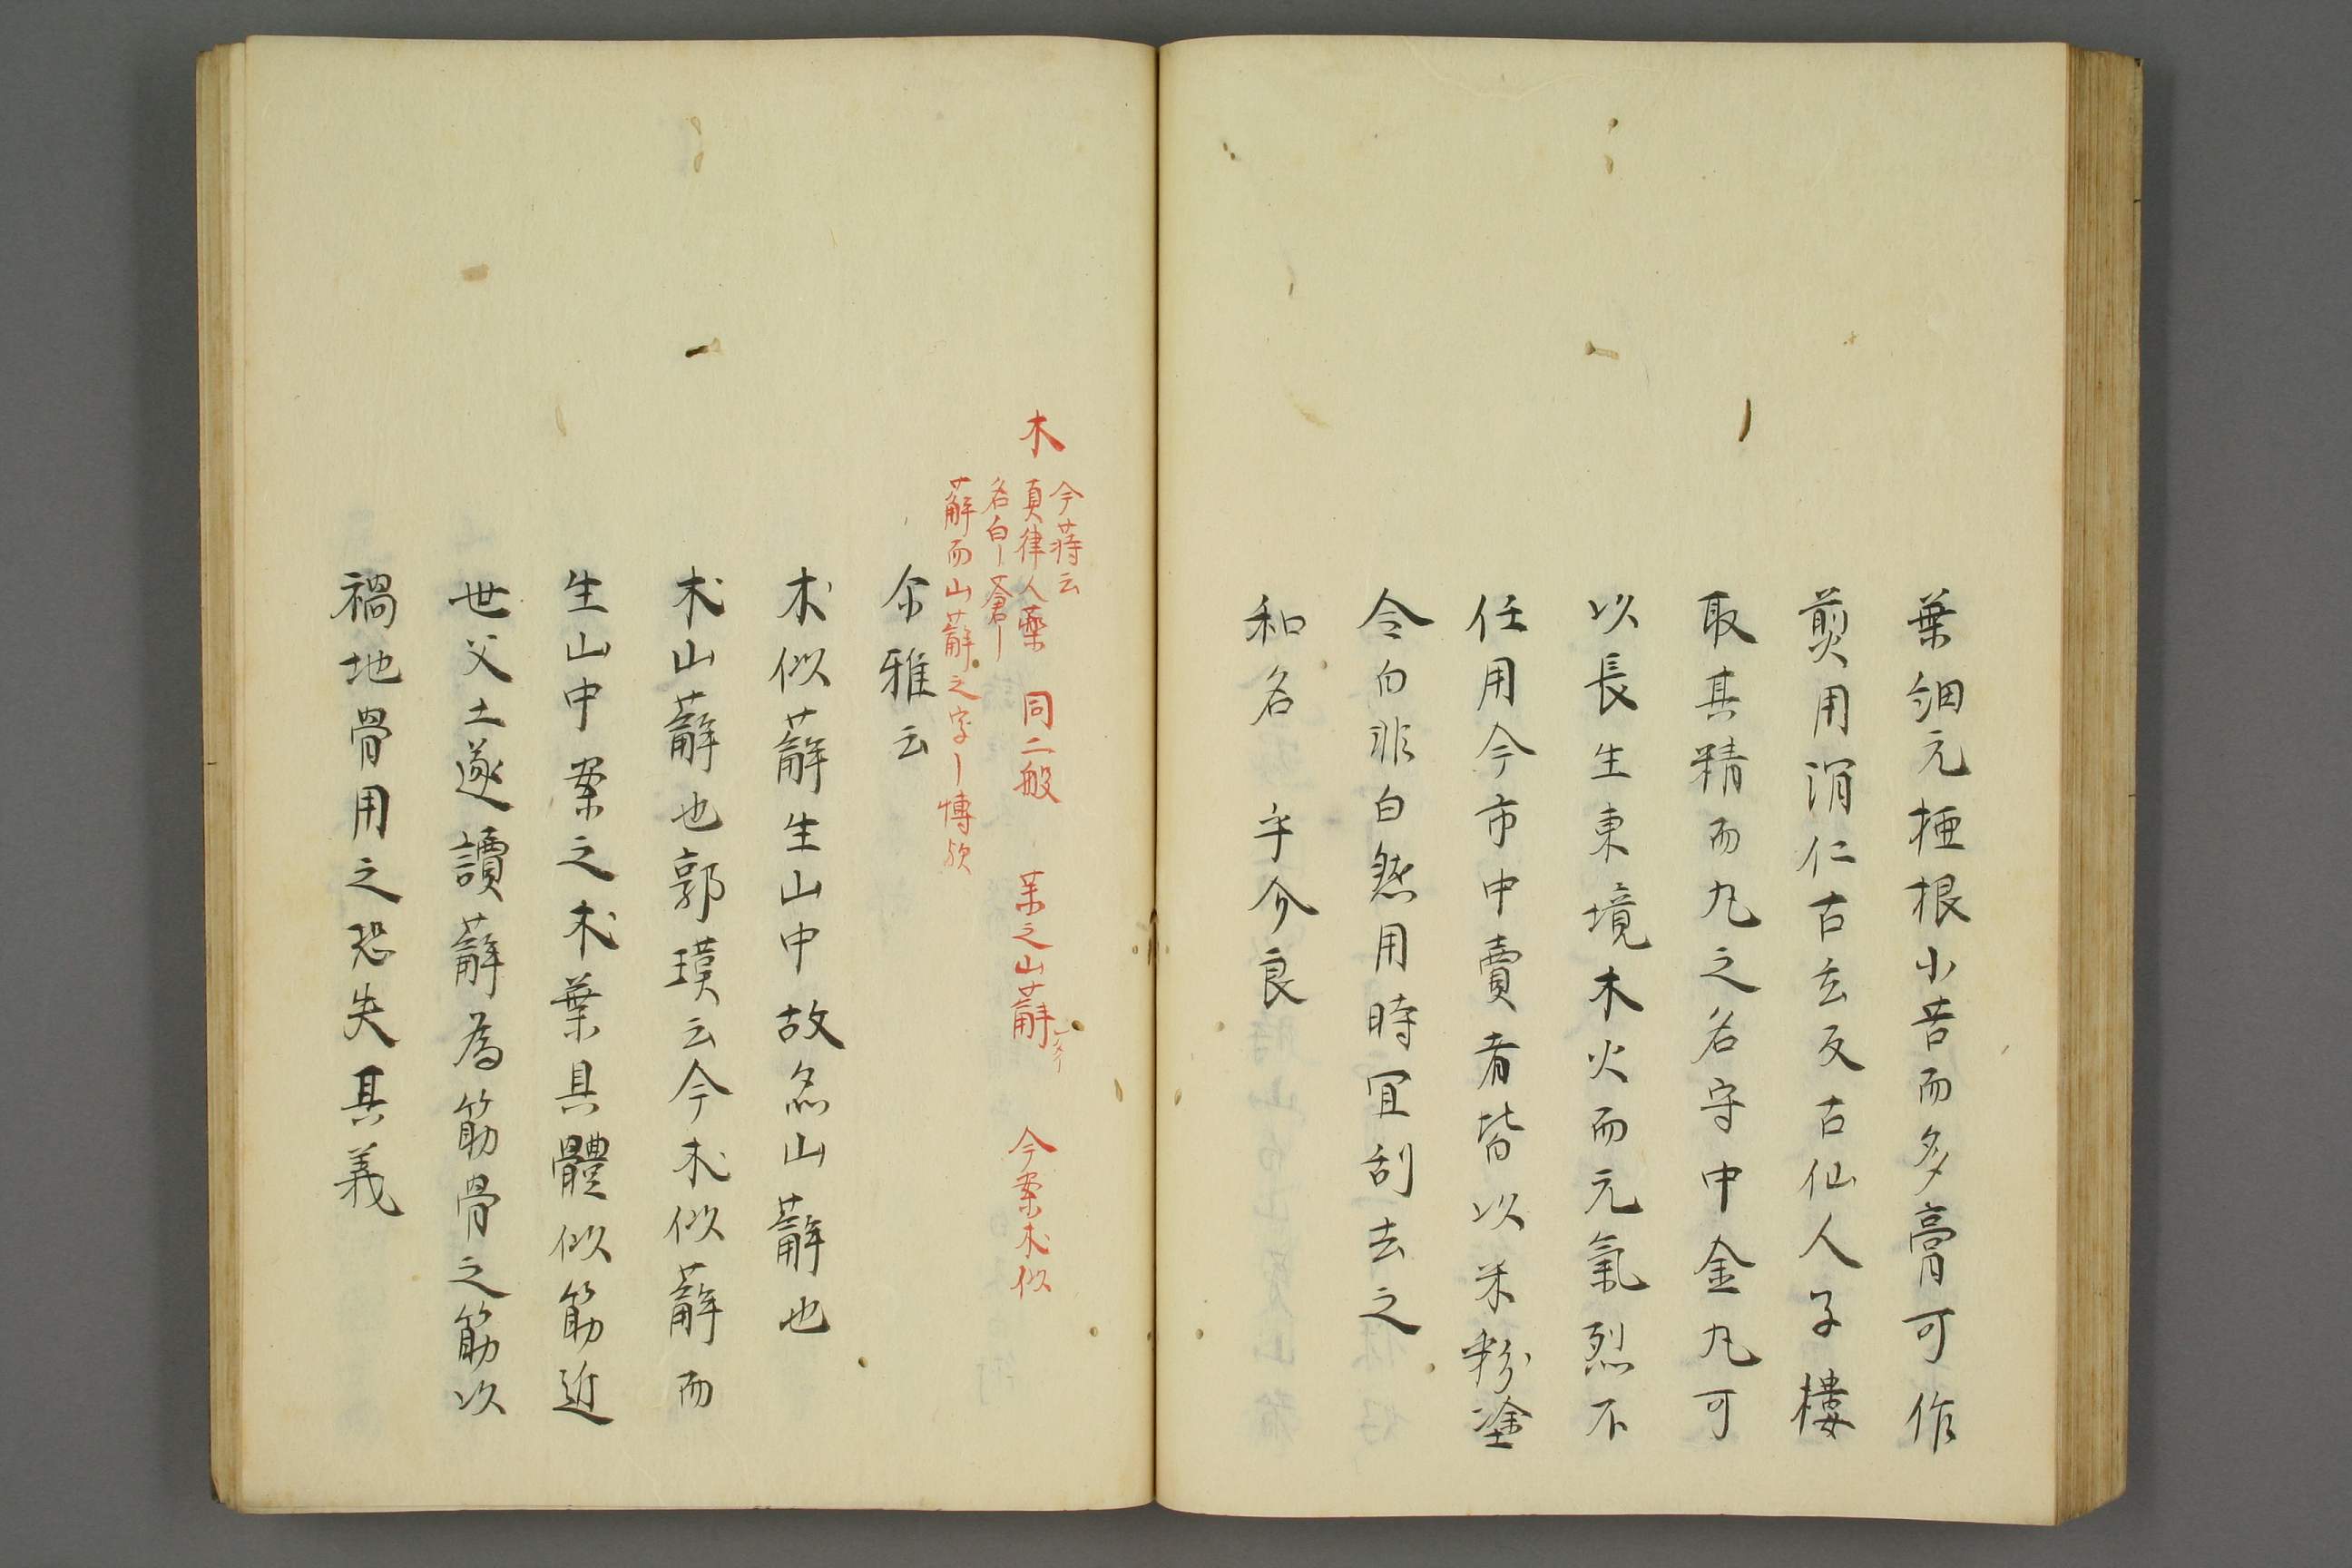 葉細元椏根小苦而多膏可作
煎用涓仁古玄反古仙人子樓
取其精而丸之名守中金丸可
以長生東境木火而元氣烈不
任用今市中賣者皆以米粉塗
令白非白然用時冝刮去之
和名 乎介良
木 今蒋云
真律人藥 同二般 葉之山薢 今案朮似
名白〡蒼〡
薢而山薢之字〡博欤
尒雅云
朮似薢生山中故名山薢也
朮山薢也郭璞云今朮似薢而
生山中案之朮葉具體似筋近
世父土遂讀薢為筋骨之筋以
禍地骨用之恐失其義